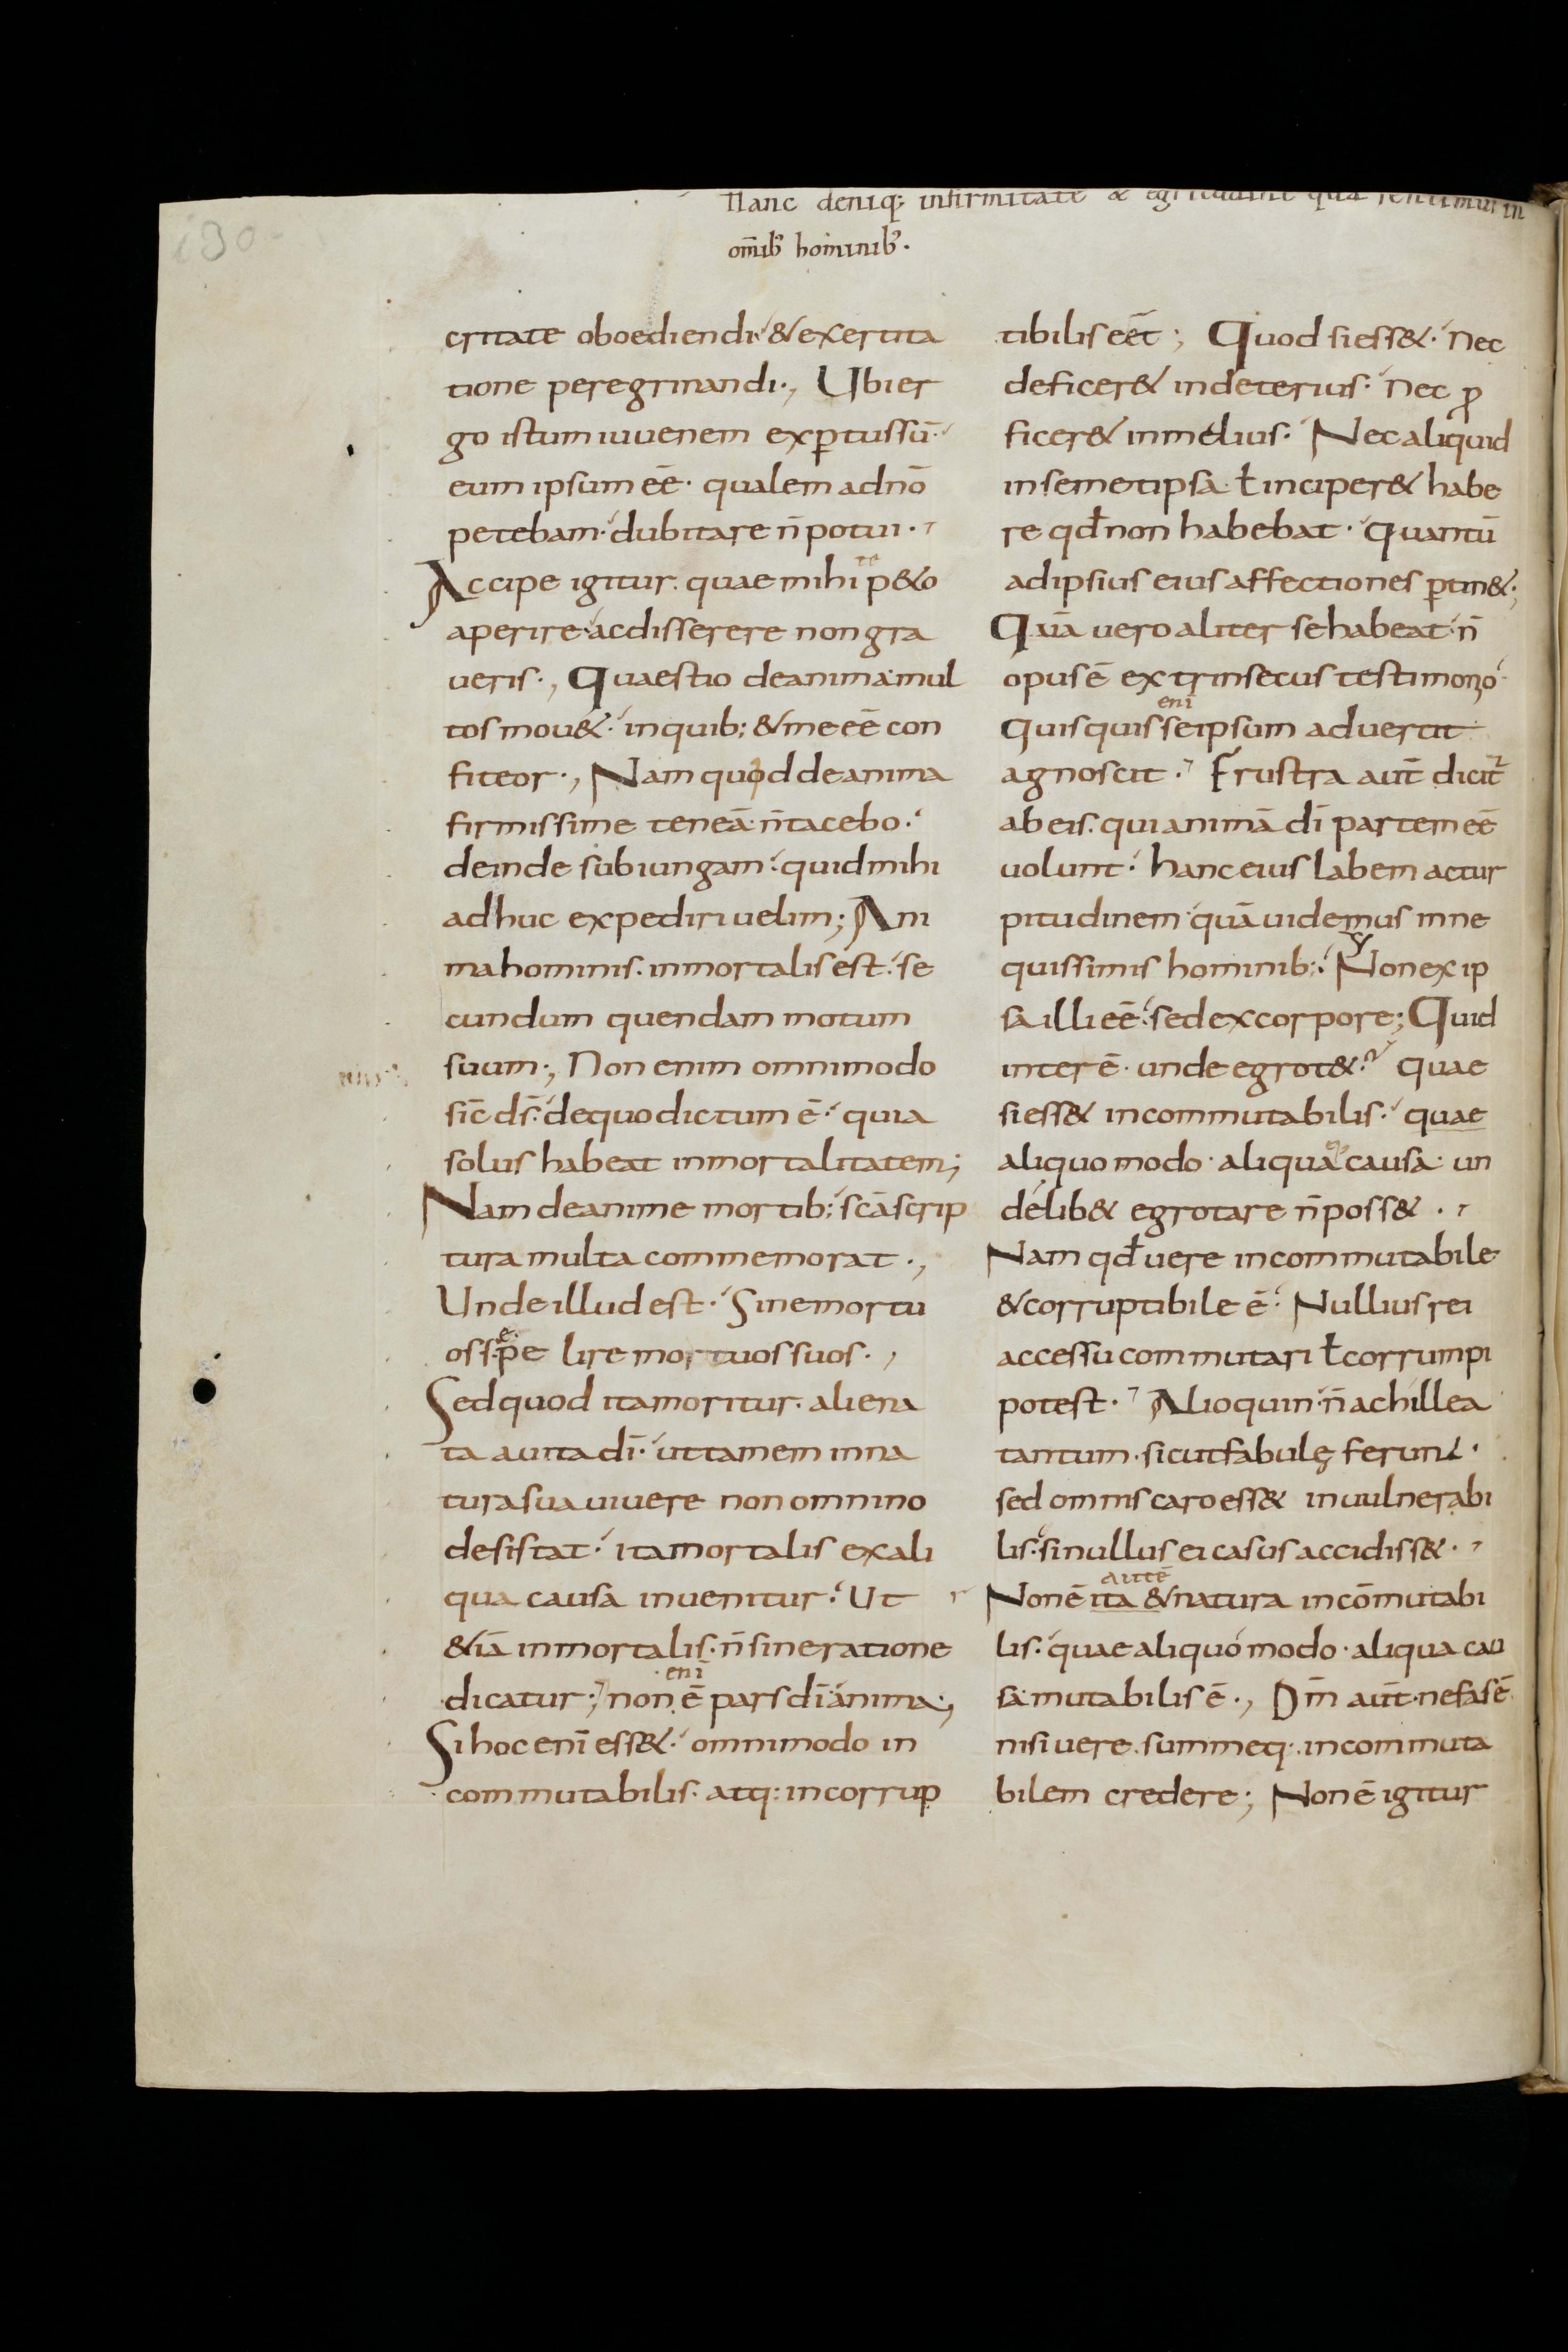 190
Hanc deniq; infirmitate & egritudine quā sentimus in
om̄ib' hominib'.
critate oboediendi & exercita
tione peregrinandi., Ubi er
go istum iuuenem exꝑtus sū·
eum ipsum eē· qualem a dn̄o
petebam· dubitare n̄ potui·
Accipe igitur. quae mihi p&o
te
aperire· ac disserere non gra
ueris., Quaestio de anima· mul
tos mou&· in quib; & me eē con
fiteor., Nam quod de anima
firmissime teneā· n̄ tacebo·
deinde subiungam· quid mihi
adhuc expediri uelim; Ani
ma hominis. inmortalis est· se
cundum quendam motum
suum., Non enim omnimodo
sic̄ d̄s· de quo dictum ē· quia
solus habeat inmortalitatem;
Nam de anime mortib; scā scrip
tura multa commemorat.,
Unde illud est· Sine mortu
e
os sepelire mortuos suos.,
Sed quod ita moritur. aliena
ta a uita dī· ut tamen in na
tura sua uiuere non omnino
desistat· ita mortalis ex ali
qua causa inuenitur· Ut
&iā inmortalis· n̄ sine ratione
enī
dicatur; non ē pars dī anima.,
Si hoc enī ess&· omnimodo in
commutabilis. atq; incorrup
tibilis eēt; Quod si ess&· Nec
deficer& in deterius· Nec ꝓ
ficer& in melius· Nec aliquid
in semetipsa· ł inciper& habe
re qđ non habebat· Quantū
ad ipsius eius affectiones ꝑtin&;
Quā uero aliter se habeat· n̄
opus ē extrinsecus testimonio
enī
Quisquis se ipsum aduertit
agnoscit· Frustra aut̄ dicit᷑
ab eis. qui animā dī partem eē
uolunt· hanc eius labem ac tur
pitudinem· quā uidemus in ne
quissimis hominib;· Non ex ip
sa illi eē· sed ex corpore; Quid
inter ē· unde egrot&· Quae
si ess& incommutabilis· quae
aliquo modo· aliqua causa· un
delib& egrotare n̄ poss&·
Nam qđ uere incommutabile
& corruptibile ē· Nullius rei
accessu commutari ł corrumpi
potest· Alioquin· n̄ achillea
tantum· sicut fabulę ferunt·
sed omnis caro ess& inuulnerabi
lis· si nullus ei casus accidiss&·
autē
Non ē ita & natura incōmutabi
lis· quae aliquo modo· aliqua cau
sa· mutabilis ē., Dm̄ aut̄· nefas ē
nisi uere. summeq;· incommuta
bilem credere; Non ē igitur